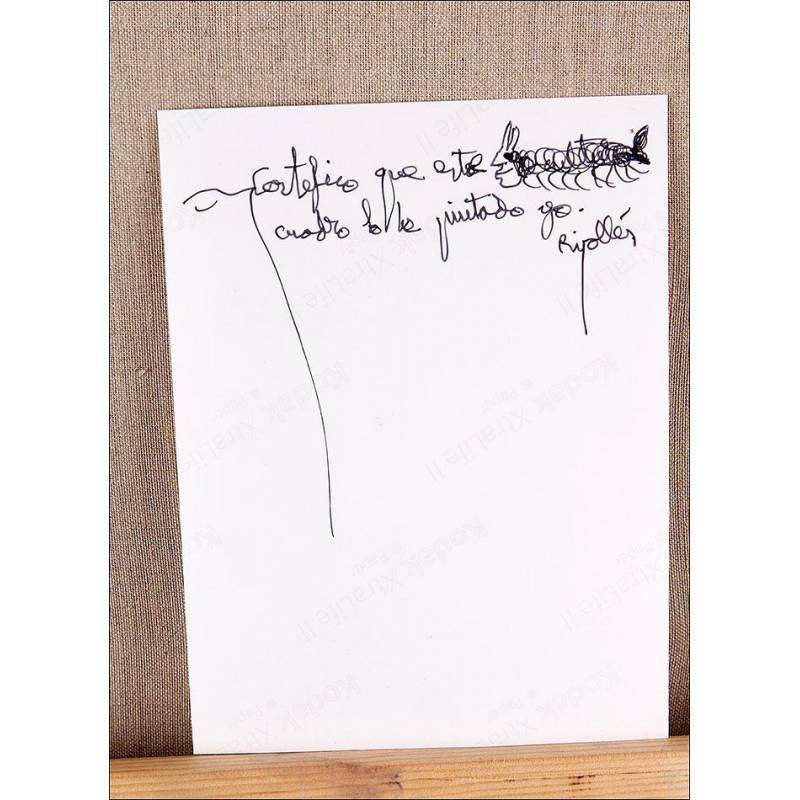 Certefico que este
cuadro lo he pintado yo.
Ripollés
Kodak XtraLife II
Paper
Kodak XtraLife II
Paper
Kodak XtraLife II
Paper